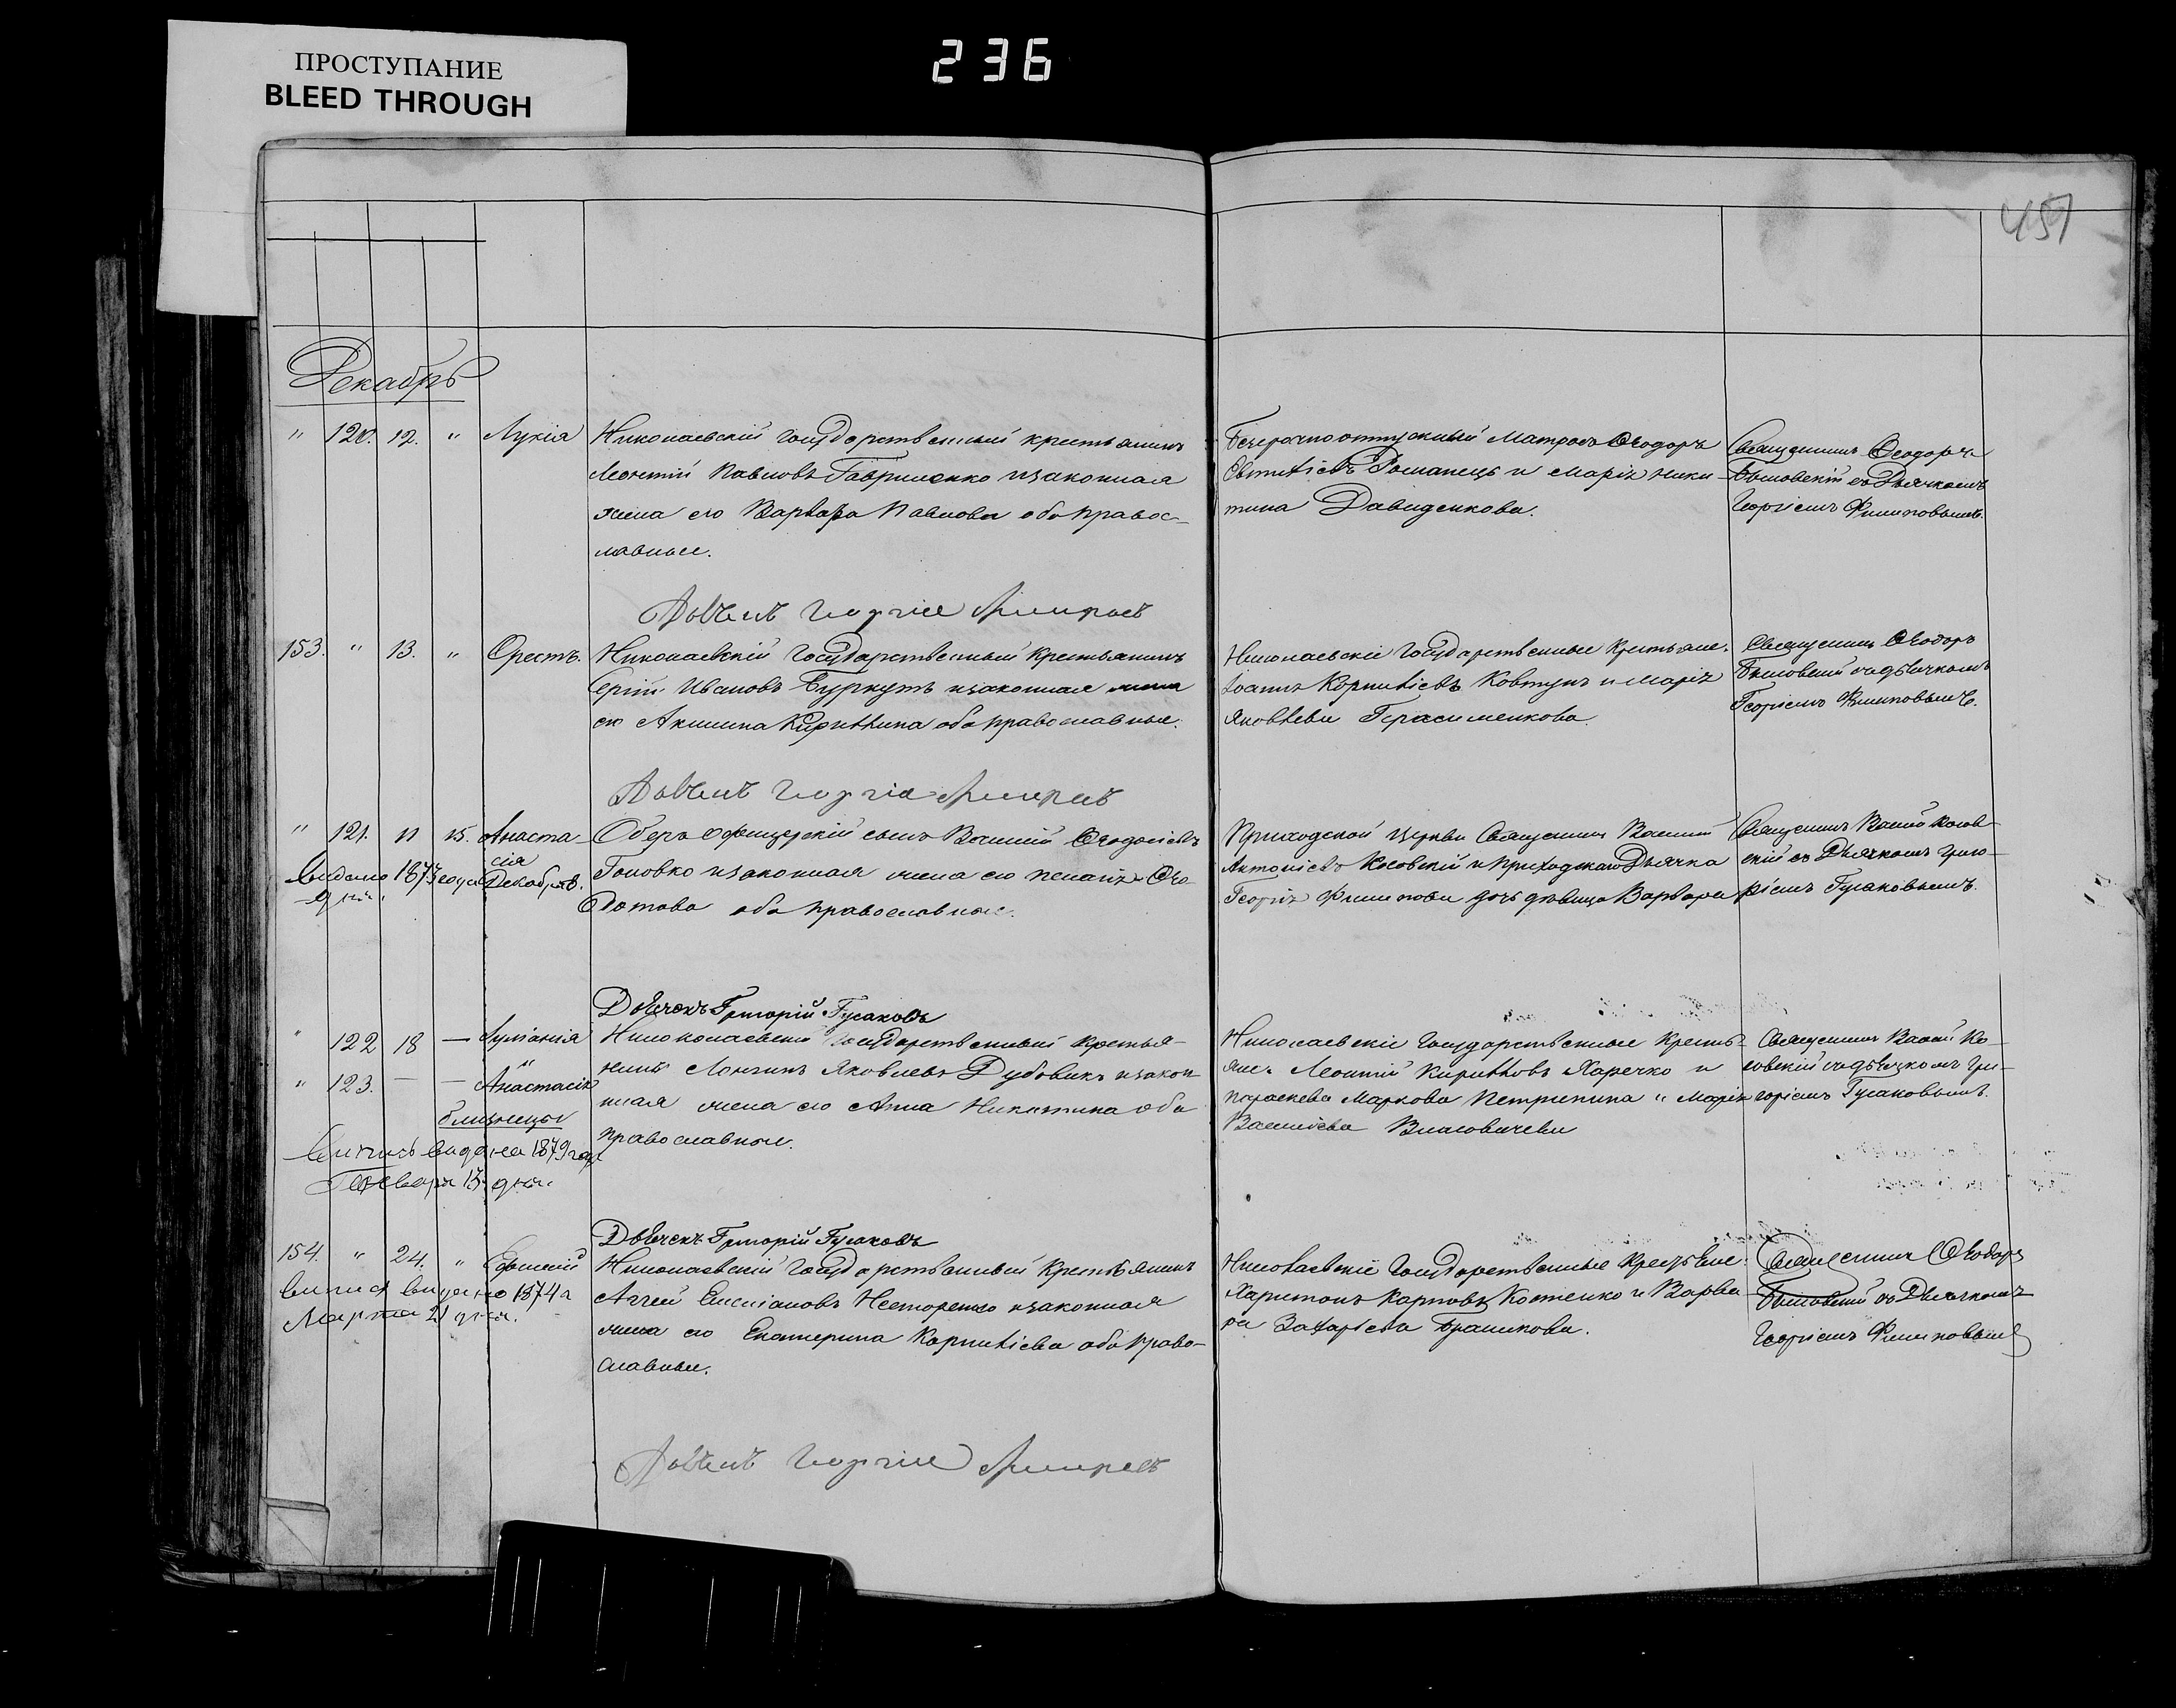 ПРОСТУПАНИЕ
BLEED THROUGH
236
457
Декабрь
" 120. 12. " Лукія
Николаевскій государственный крестьянинъ
Леонтій Павловъ Гавриленко и законная
жена его Варвара Павлова оба правос-
лавные.
Безсрочноотпускный Матросъ Ѳеодоръ
Евтихіевъ Романецъ и Марія Ники-
тина Давиденкова.
Священникъ Ѳеодоръ
съ Дьячкомъ
Георгіемъ Филиповымъ.
153. " 13. " Орестъ.
Николаевскій Государственный крестьянинъ
Сергій Ивановъ Буркутъ и законная жена
его Акилина оба православные.
Николаевскіе Государственные Крестьяне:
Іоаннъ Корниліевъ Ковтунъ и Марія
Яковлева Герасименкова.
Священникъ Ѳеодоръ
съ дьячкомъ
Георгіемъ Филиповымъ.
" 121. 11 15. Анаста-
сія
Видано 1873 года Декабря
дня.
Оберъ офицерскій сынъ Василій Ѳеодосіевъ
Головко и законная жена его Пелагія Ѳео-
дотова оба православные.
Приходской Церкви Священникъ Василій
Антоніевъ Косовскій и приходскаго Дьячка
Георгія Филипова дочь дѣвица Варвара
Священникъ Василій Косов-
скій съ Дьячкомъ Григо-
ріемъ Гусаковымъ.
Дьячокъ Григорій Гусаковъ
" 122 18 —
" 123. — — Анастасія
близнецы
Выпись видана 1879 года
Января 13 дня.
Государственный крестья-
нинъ Лонгинъ Яковлевъ Дубовикъ и закон-
ная жена его Анна Никитина оба
православные.
Николаевскіе Государственные Кресть-
яне: Леонтій Кирилловъ Харечко и
Параскева Маркова Петренкина и Марія
Василіева
Священникъ Василій Ко-
совскій съ дьячкомъ Гри-
горіемъ Гусаковымъ.
Дьячокъ Григорій Гусаковъ
154. " 24. " Евгеній
выпись видано 1874 г
Марта 21 дня.
Николаевскій Государственный Крестьянинъ
Аггей Нестеренко и законная
жена его Екатерина Корниліева оба право-
славные.
Николаевскіе Государственные Крестьяне:
Харитонъ Карповъ Котенко и Варва-
ра Захаріева
Священникъ Ѳеодоръ
съ Дьячкомъ
Георгіемъ Филиповымъ